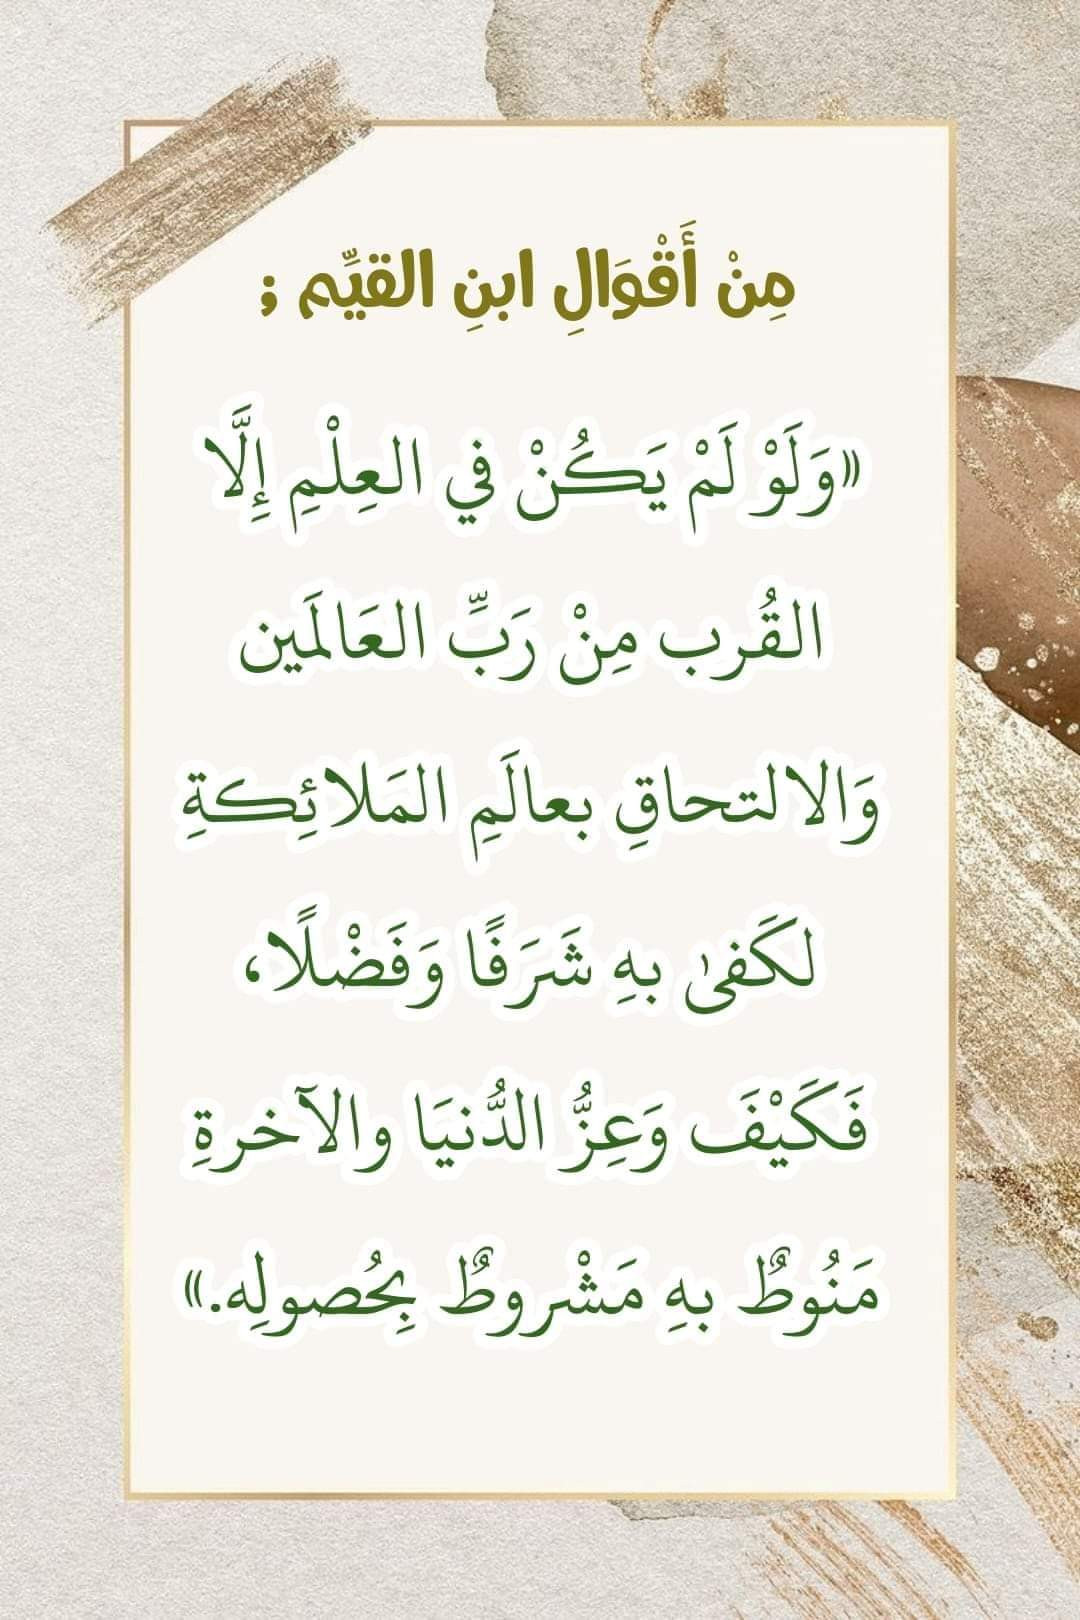 مِنْ أَقْوَالِ ابنِ القيِّم ;
«وَلَوْ لَمْ يَكُنْ في العِلْمِ إِلَّا
القُرب مِنْ رَبِّ العَالَمَين
وَالالتحاقِ بعالَمِ المَلائِكةِ
لكَفىٰ بهِ شَرَفًا وَفَضْلًا،
فَكَيْفَ وَعِزُّ الدُّنيَا والآخرةِ
مَنُوطٌ بهِ مَشْروطٌ بِحُصولِه.»